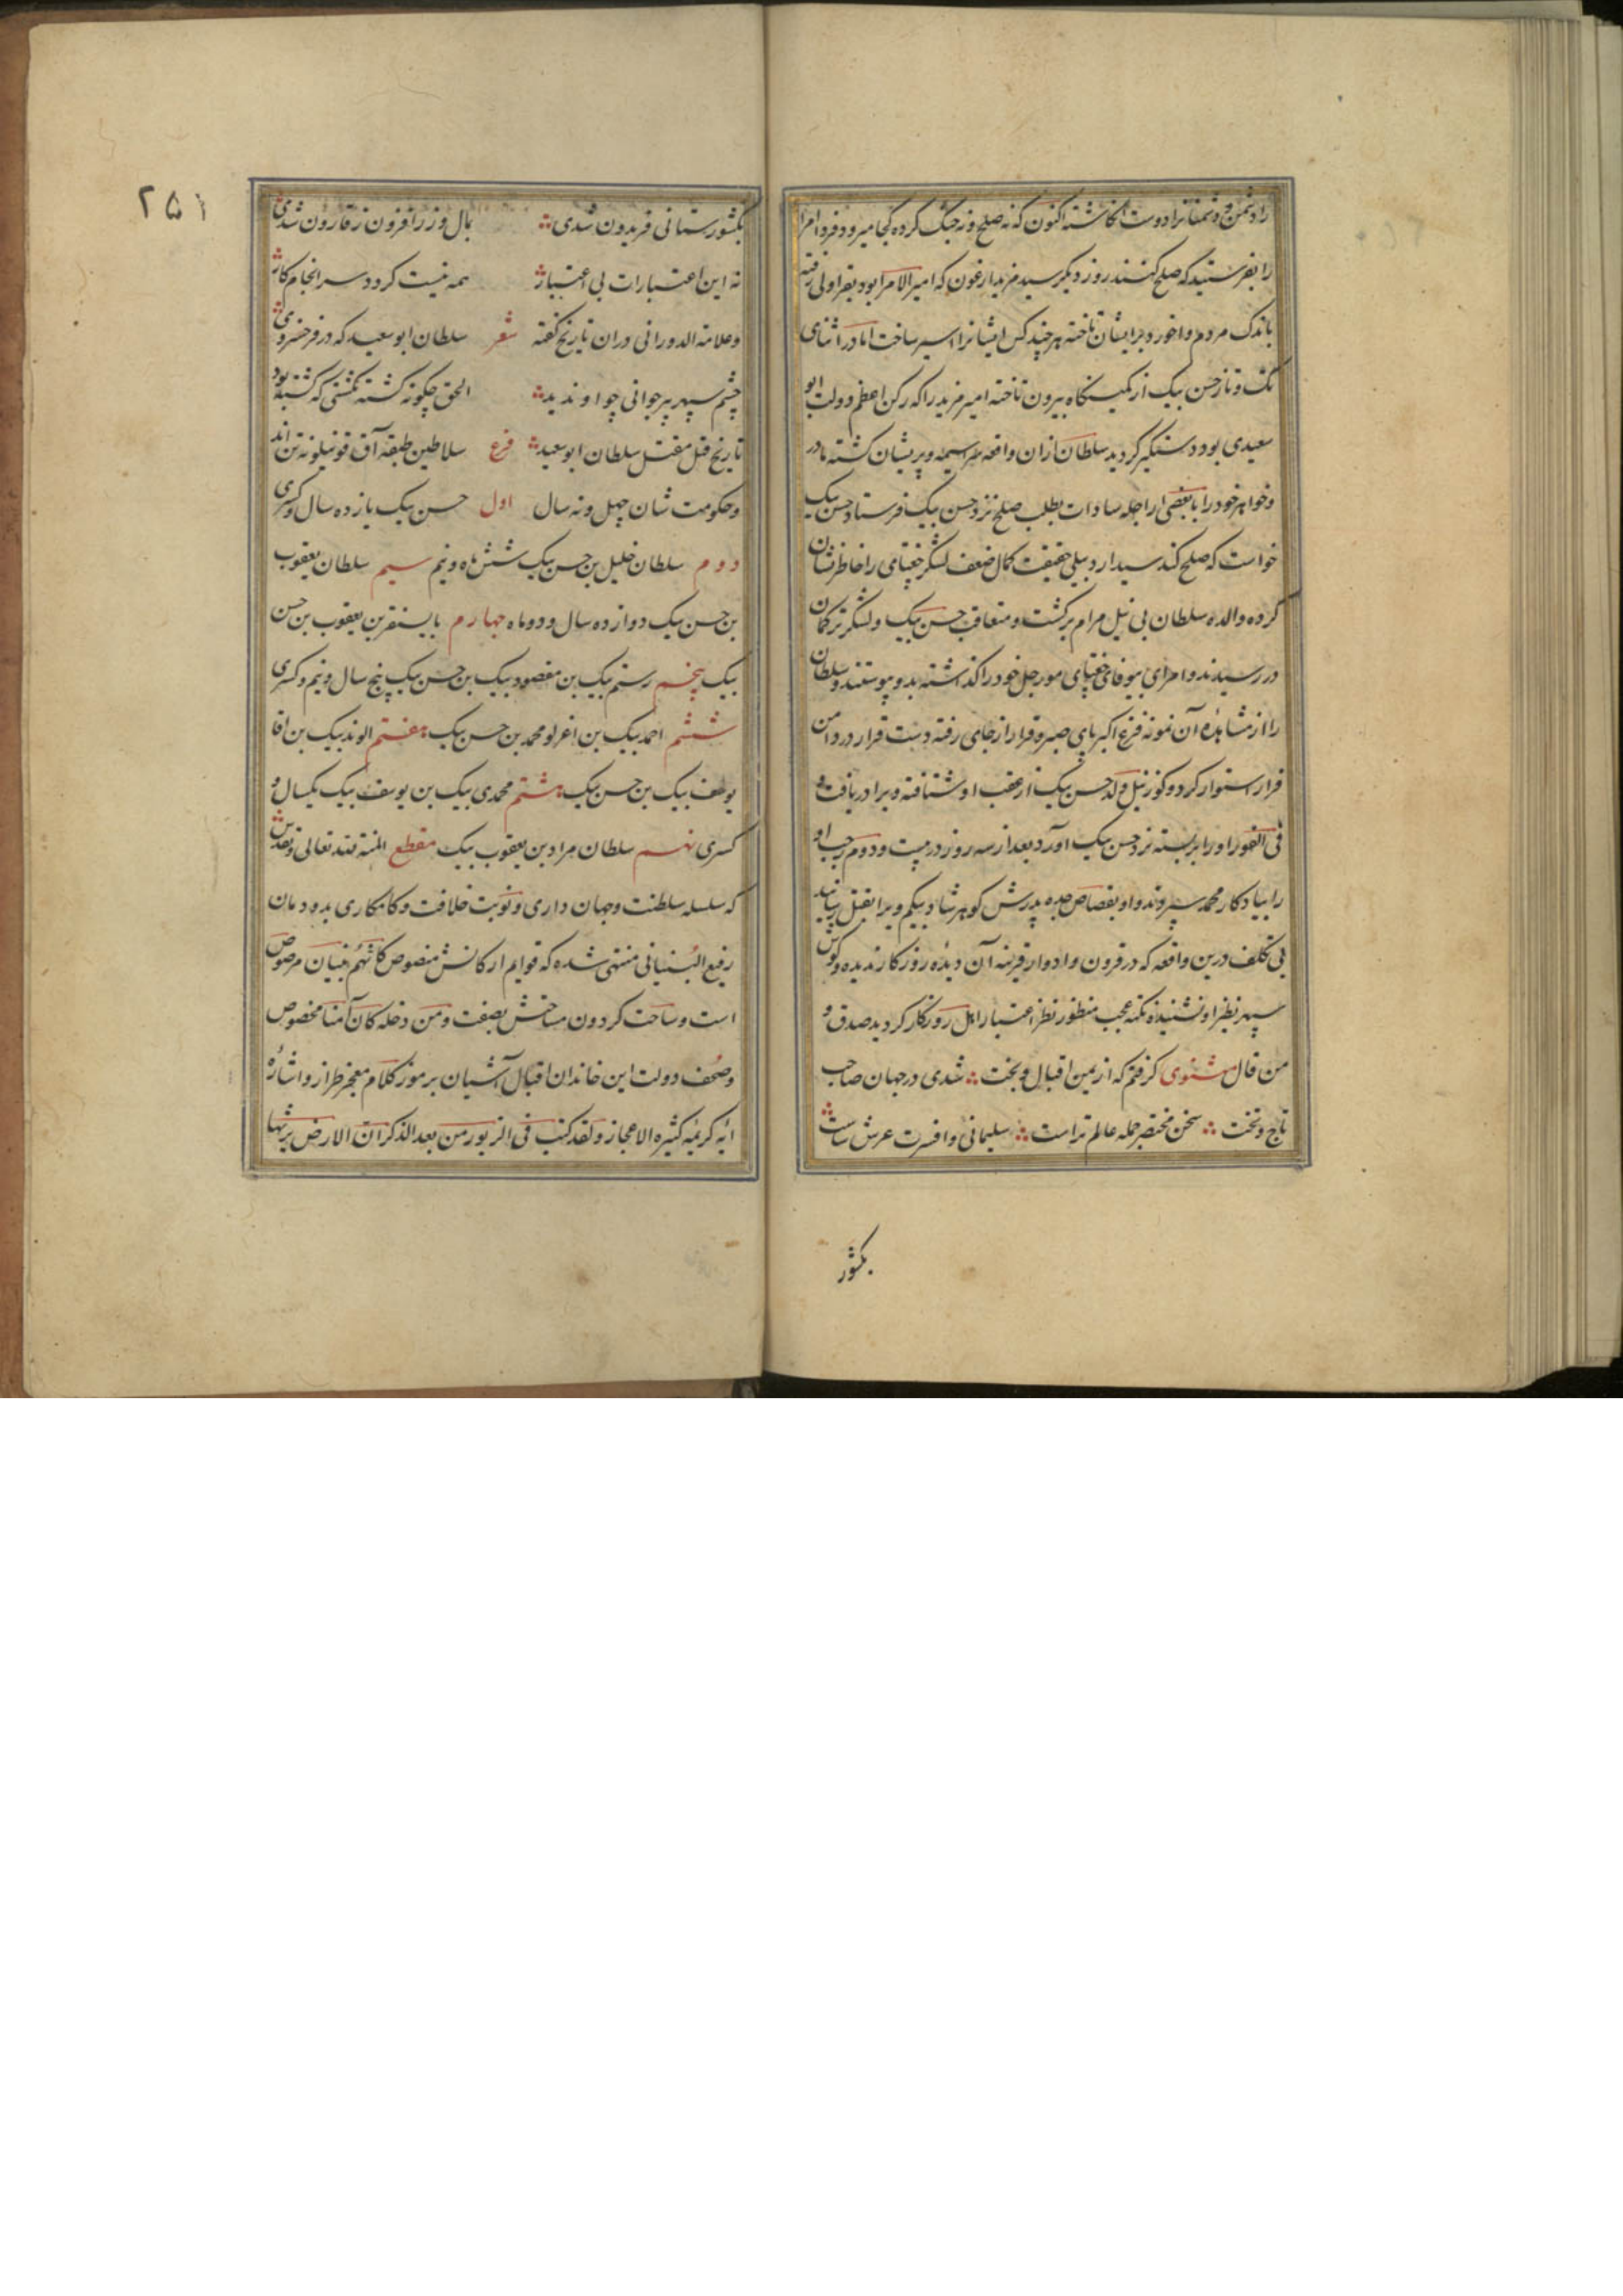 را دشمن و دشمنانرا دوست انگاشته اکنون که نه صلح و نه جنگ کرده کجا میرود فردا امرا
را بفرستید که صلح کنند روز دیگر سید مزید ارغون که امیر الامرا بود بقراولی رفته
باندک مردم واخورد و برایشان تاخته هر چند کس ایشانرا اسیر ساخت اما در اثنای
تک و تاز حسن بیک از کمینگاه بیرون تاخته امیر مزید را که رکن اعظم دولت ابو
سعیدی بود دستگیر گردید سلطان ازان واقعه سراسیمه و پریشان گشته مادر
و خواهر خود را با بعضی از اجله سادات بطلب صلح نزد حسن بیک فرستاد حسن بیک
خواست که صلح کند سید اردبیلی حقیقت کمال ضعف لشکر جغتای را خاطرنشان
کرده والده سلطان بی نیل مرام برگشت و متعاقب حسن بیک و لشکر ترکمان
در رسیدند و امرای بیوفای جغتای مورچل خود را گذاشته بدو پیوستند و سلطان
را از مشاهده آن نمونه فزع اکبر پای صبر و قرار از جای رفته دست قرار در دامن
فرار استوار کرد و کور زینل ولد حسن بیک از عقب او شتافته ویرا دریافت و
فی الفور او را بر بسته نزد حسن بیک آورد بعد از سه روز در بیست و دوم رجب او
را بیادگار محمد سپردند و او بقصاص جده پدرش گوهرشاد بیگم ویرا بقتل رسانید
بی تکلف درین واقعه که در قرون و ادوار قرینه آن دیده روزگار ندیده و گوش
سپهر نظیر او نشنیده نکته عجب منظور نظر اعتبار اهل روزگار گردید صدق و
من قال مثنوی گرفتم که از یمن اقبال و بخت شدی در جهان صاحب
تاج و تخت سخن مختصر جمله عالم تراست سلیمانی و افسرت عرش ساست
بکشور
۲۵۱
بکشورستانی فریدون شدی بمال و زر افزون ز قارون شدی
نه این اعتبارات بی اعتبار همه نیست گردد سرانجام کار
و علامة الدورانی دران تاریخ گفته شعر سلطان ابوسعید که در فر خسروی
چشم سپهر پیر جوانی چو او ندید الحق چگونه کشته نگشتی که گشته بود
تاریخ قتل مقتل سلطان ابوسعید فرع سلاطین طبقه آق قوینلو نه تن اند
و حکومت شان چهل و نه سال اول حسن بیک یازده سال و کسری
دوم سلطان خلیل بن حسن بیک شش ماه و نیم سیم سلطان یعقوب
بن حسن بیک دوازده سال و دو ماه چهارم بایسنقر بن یعقوب بن حسن
بیک پنجم رستم بیک بن مقصود بیک بن حسن بیک پنج سال و نیم و کسری
ششم احمد بیک بن اغرلو محمد بن حسن بیک هفتم الوند بیک بن
یوسف بیک بن حسن بیک هشتم محمدی بیک بن یوسف بیک یکسال و
کسری نهم سلطان مراد بن یعقوب بیک مقطع المنة لله تعالی و تقدس
که سلسله سلطنت و جهان داری و نوبت خلافت و کامکاری بدودمان
رفیع البنیانی منتهی شده که قوایم ارکانش منصوص کانهم بنیان مرصوص
است و ساحت گردون مساحتش بصفت و من دخله کان آمنا مخصوص
و صحف دولت این خاندان اقبال آشیان بر موز کلام معجز طراز و اشاره
ایه کریمه کثیره الاعجاز و لقد کتبنا فی الزبور من بعد الذکر ان الارض یرثها